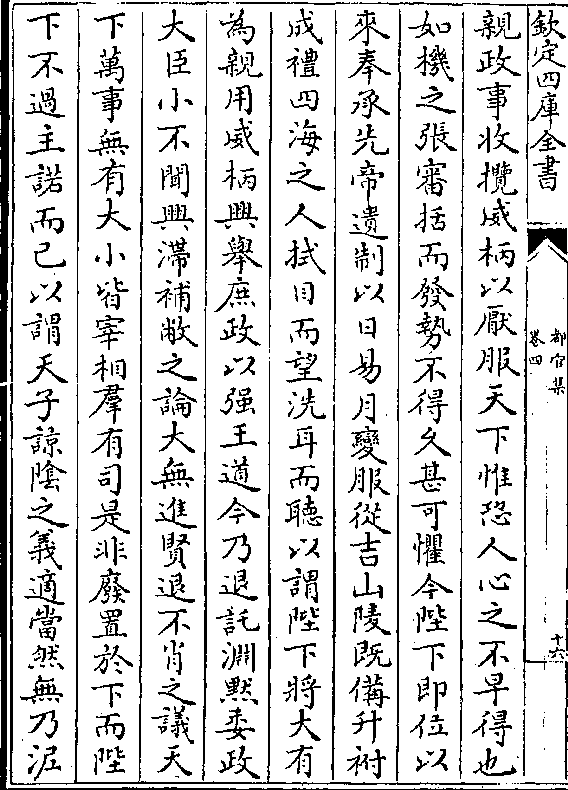 欽定四庫全書
都官集
卷四
十六
親政事收攬威柄以厭服天下惟恐人心之不早得也
如機之張審括而發勢不得久甚可懼今陛下即位以
來奉承先帝遺制以日易月變服從吉山陵既備升祔
成禮四海之人拭目而望洗耳而聽以謂陛下將大有
為親用威柄興舉庶政以强王道今乃退託淵默委政
大臣小不聞興滯補敝之論大無進賢退不肖之議天
下萬事無有大小皆宰相羣有司是非廢置於下而陛
下不過主諾而已以謂天子諒陰之義適當然無乃泥